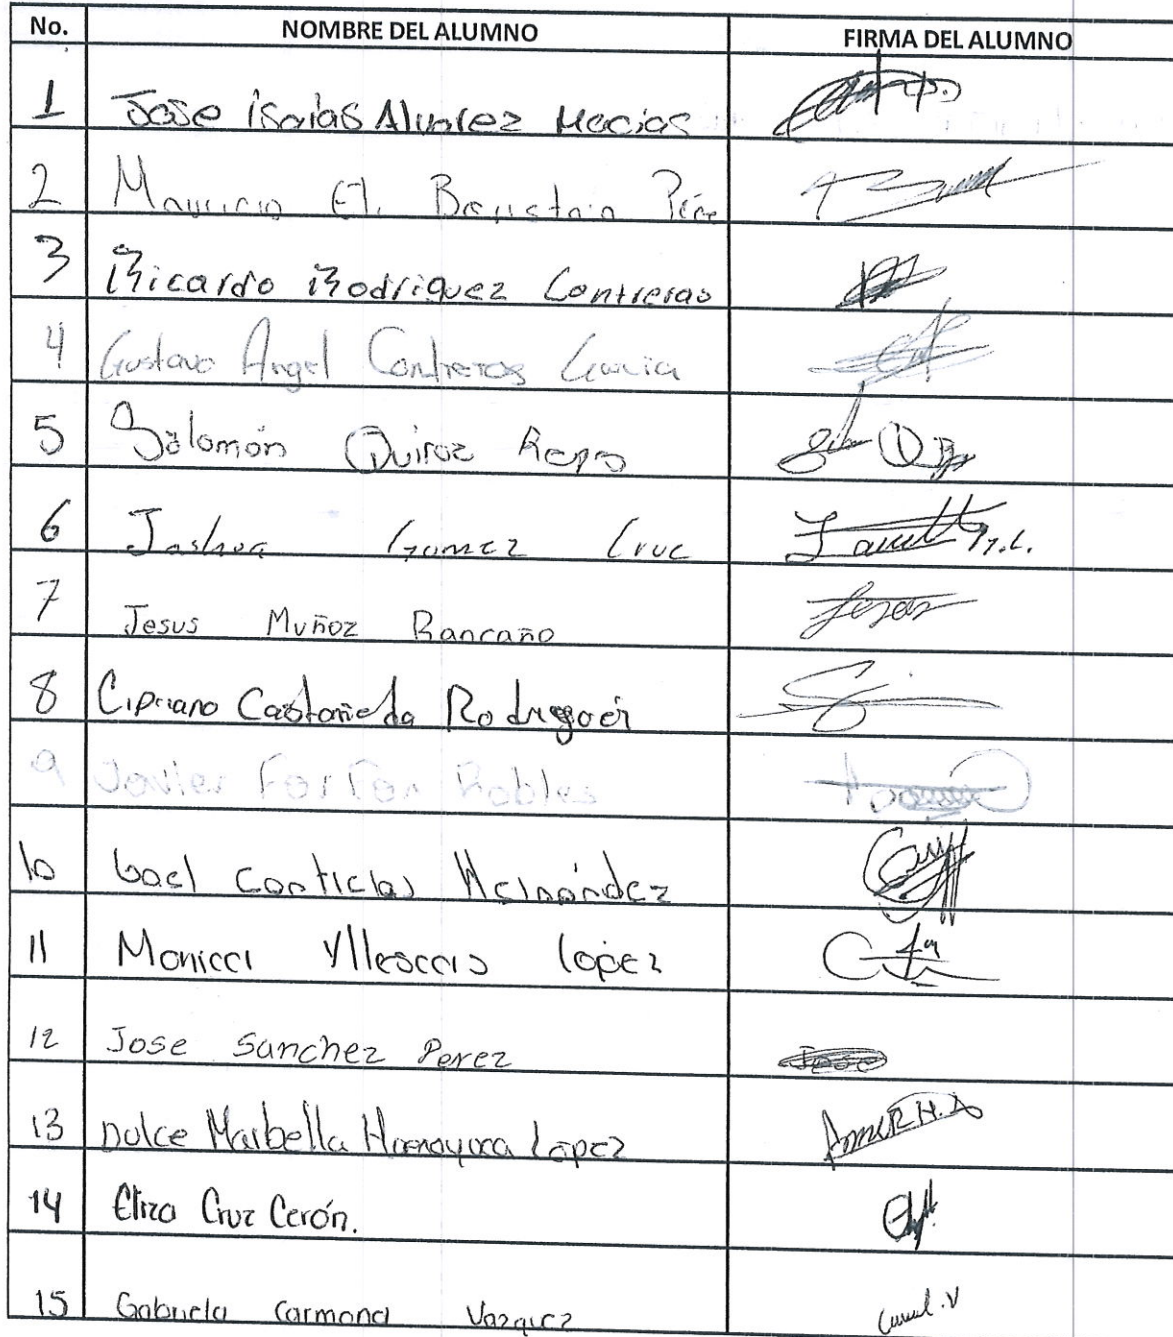 No. NOMBRE DEL ALUMNO FIRMA DEL ALUMNO
1 Jose isaias Alvarez Macias
2 Mauricio El. Baustain
3 Ricardo Rodriguez Contreras
4 Gustavo Angel Contreras Garcia
5 Salomón Quiroz
6 Jashua Gomez Cruc
7 Jesus Muñoz Rancaño
8 Cipriano Castañeda Rodriguez
9 Javier Farfan Robles
10 Gael Hernández
11 Monica Yllescas lopez
12 Jose Sanchez Perez Jose
13 Dulce Marbella López
14 Eliza Cruz Cerón.
15 Gabriela Carmona Vazquez